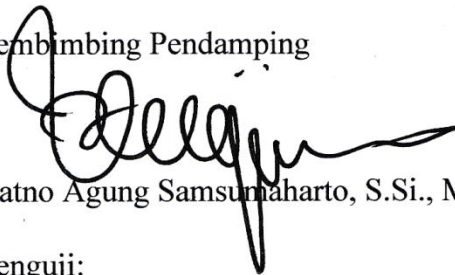 embimbing Pendamping
atno Agung Samsumaharto, S.Si., M
enguji: